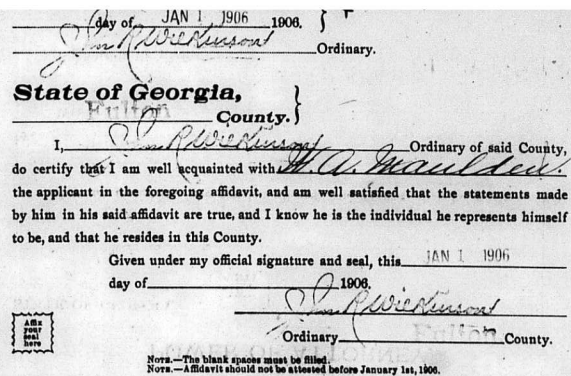 day of JAN 1 1906 1906. }
Jno R Wilkinson Ordinary.
State of Georgia,
Fulton County. }
I, Jno R Wilkinson Ordinary of said County,
do certify that I am well acquainted with A. Maulden.
the applicant in the foregoing affidavit, and am well satisfied that the statements made
by him in his said affidavit are true, and I know he is the individual he represents himself
to be, and that he resides in this County.
Given under my official signature and seal, this JAN 1 1906
day of 1906.
Jno R Wilkinson
Affix
your
seal
here
Ordinary Fulton County.
NOTE.—The blank spaces must be filled.
NOTE.—Affidavit should not be attested before January 1st, 1906.